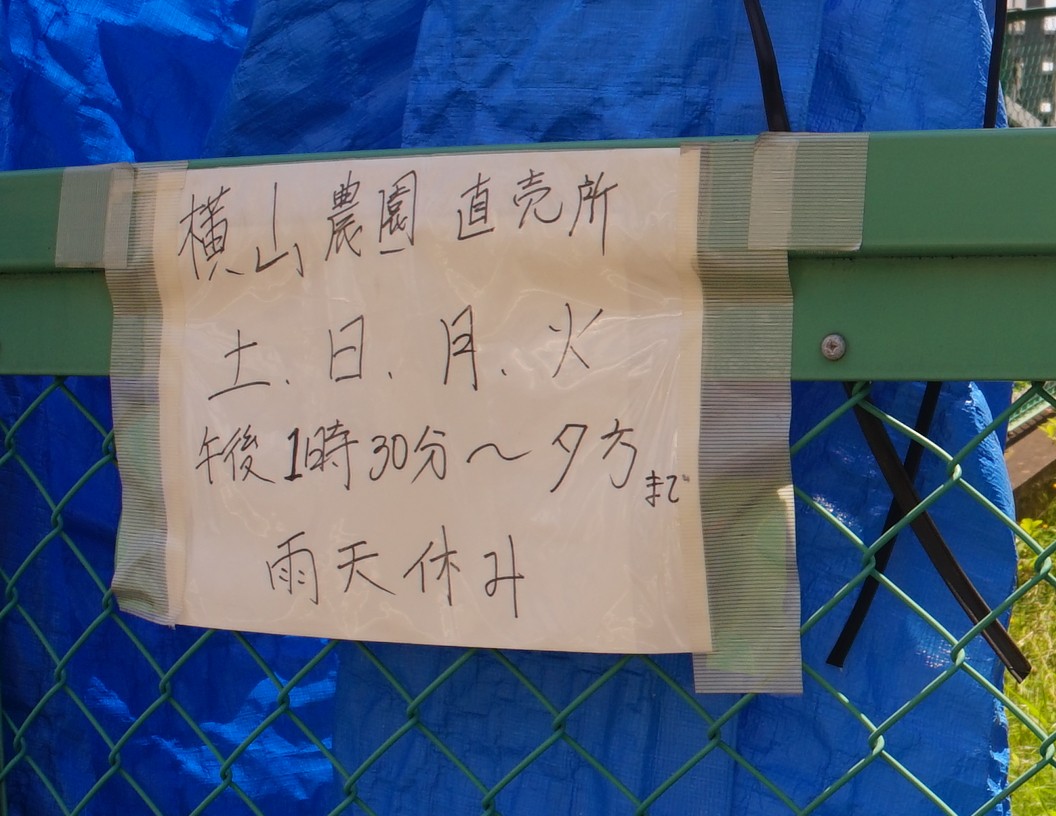 横山農園 直売所
土、日、月、火
午後1時30分〜夕方まで
雨天休み